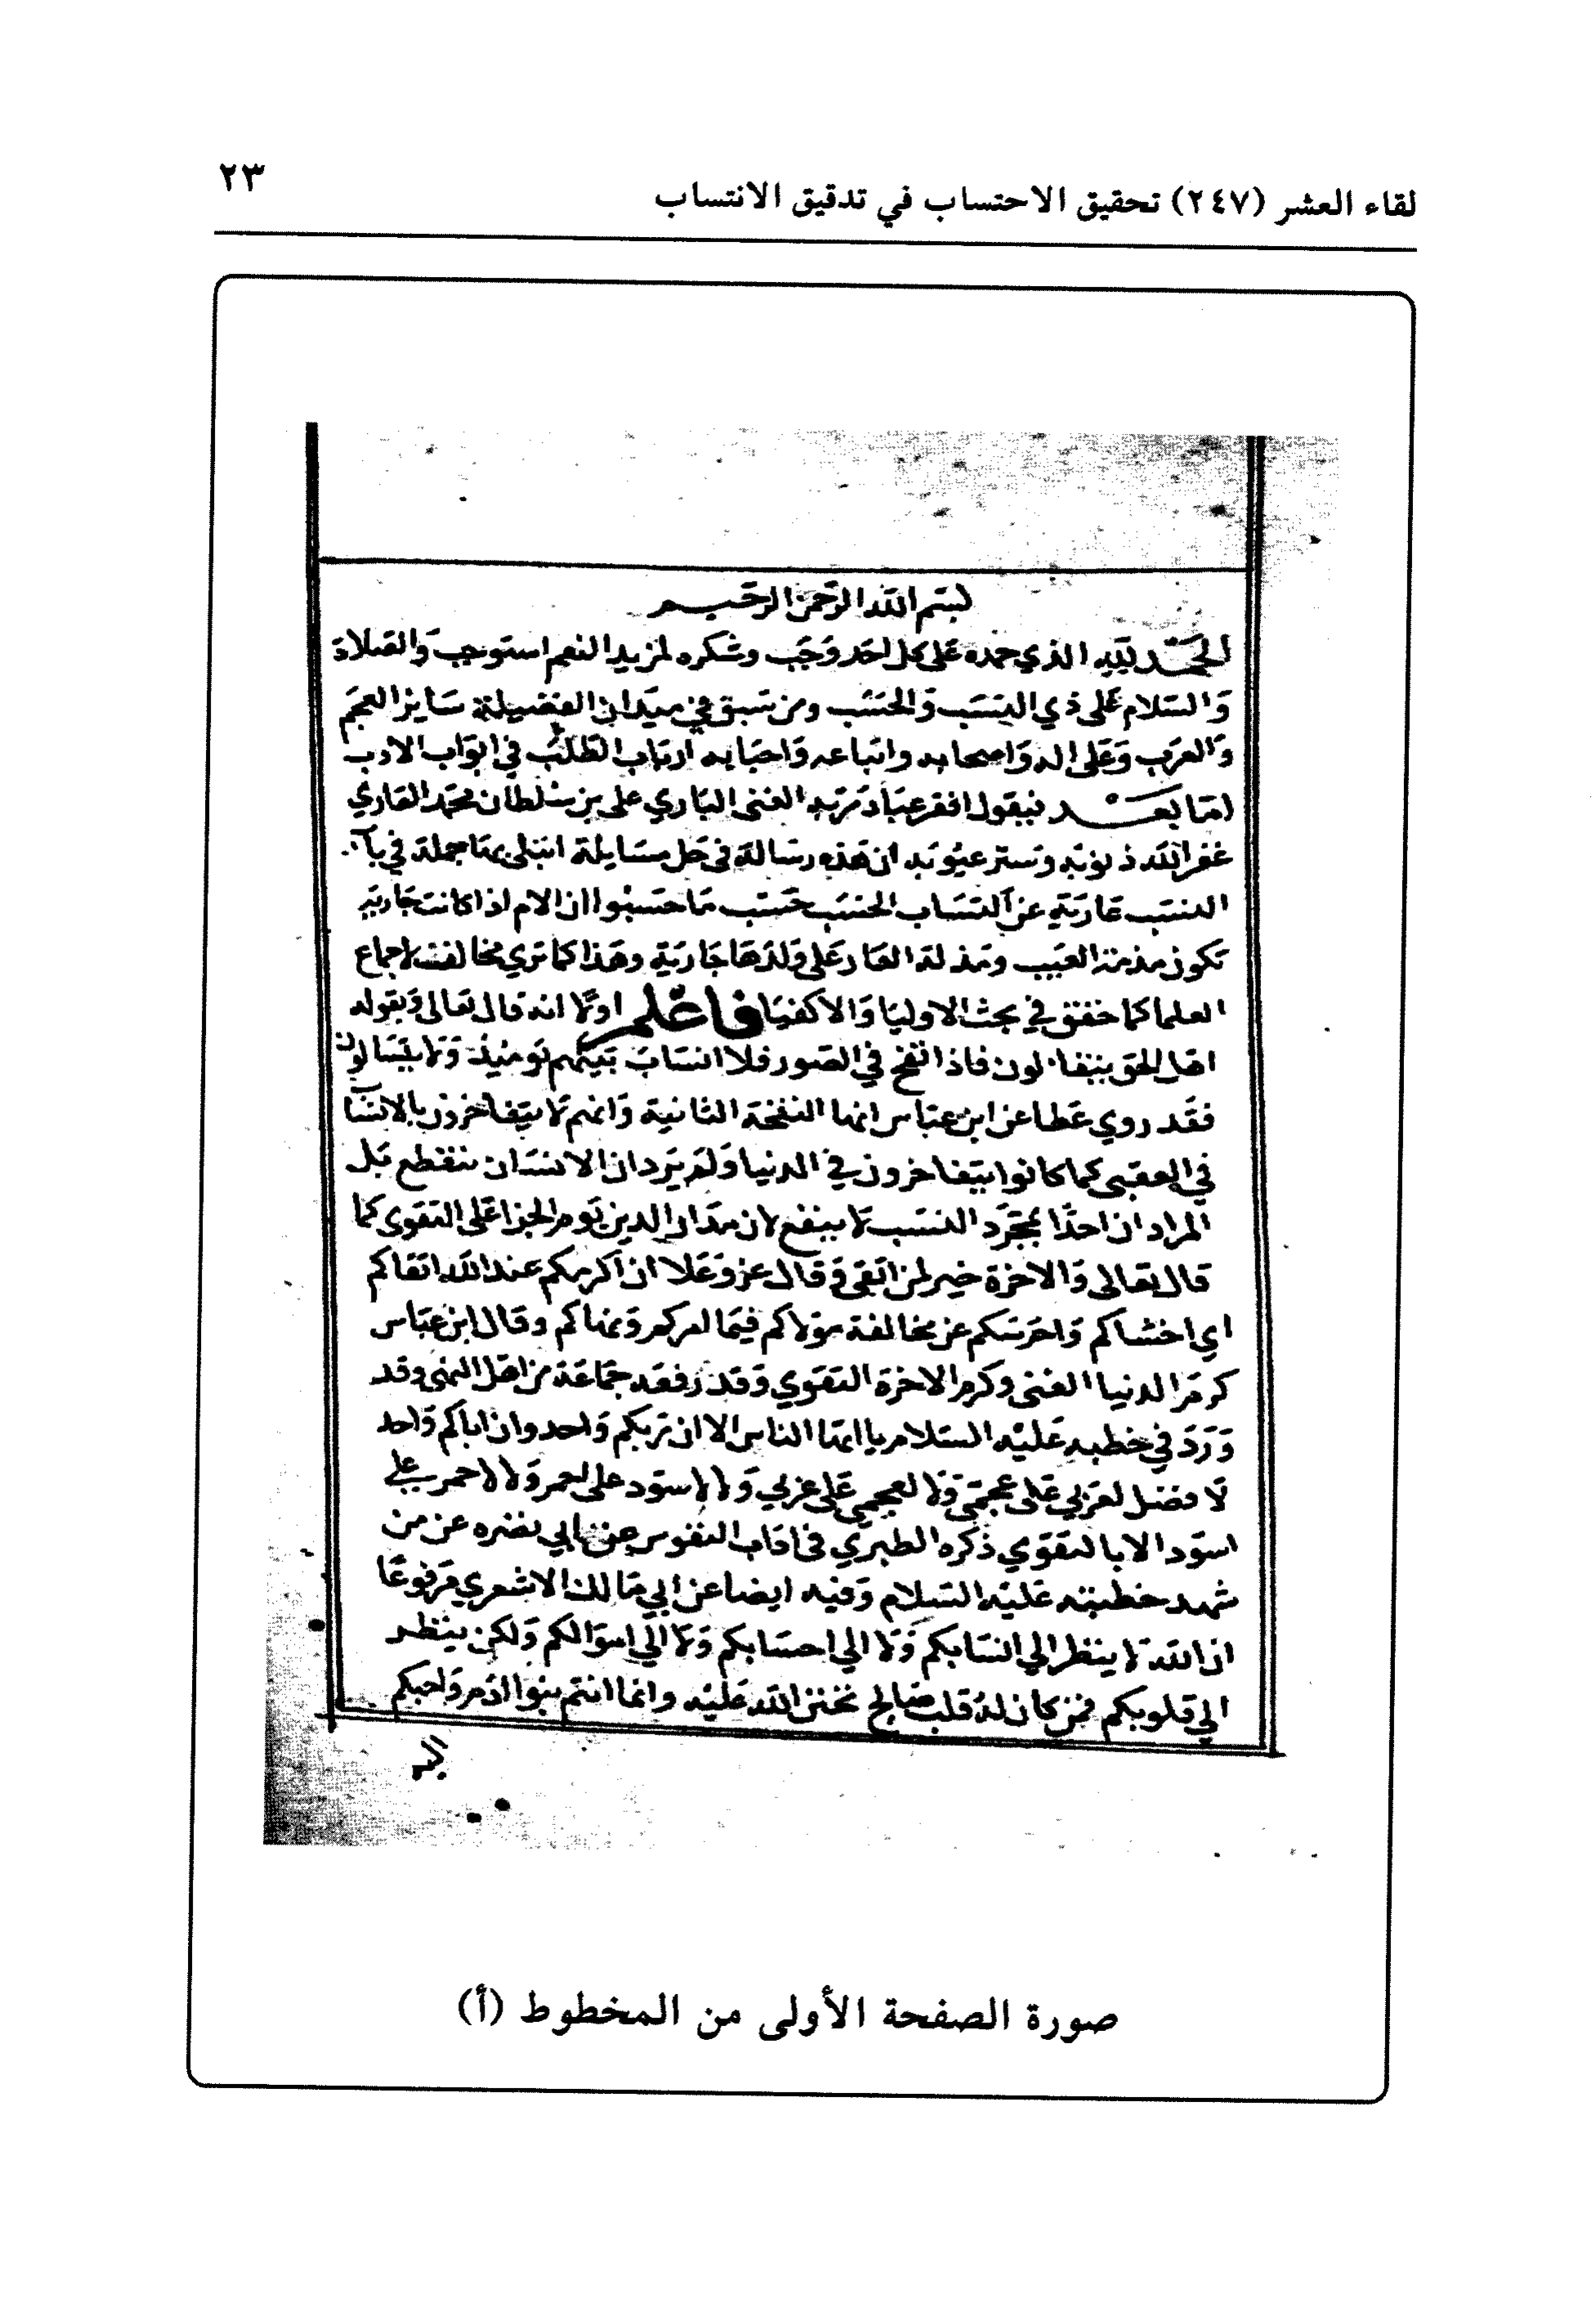 ٢٣
لقاء العشر (٢٤٧) تحقيق الاحتساب في تدقيق الانتساب
بسم الله الرحمن الرحيم
الحمد لله الذي حمده على كل احد وجب وشكره لمزيد النعم استوجب والصلاة
والسلام على ذي النسب والحسب ومن سبق في ميدان الفضيلة ساير العجم
والعرب وعلى اله واصحابه واتباعه واحبابه ارباب الطلب في ابواب الادب
اما بعد فيقول افقر عباد ربه الغني الباري علي بن سلطان محمد القاري
غفر الله ذنوبه وستر عيوبه ان هذه رسالة في حل مسايلة ابتلي بها جملة في باب
النسب عارية عن اكتساب الحسب حسب ما حسبوا ان الام اذا كانت جارية
تكون مذمة العيب ومذلة العار على ولدها جارية وهذا كما تري مخالف لاجماع
العلما كما حقق في بحث الاوليا والاكفيا فاعلم اولا انه قال تعالى وبقوله
اهل الحق يتفالون فاذا نفخ في الصور فلا انساب بينهم يوميذ ولا يتسالون
فقد روي عطا عن ابن عباس انها النفخة الثانية وانهم لا يتفاخرون بالانسا
في العقبى كما كانوا يتفاخرون في الدنيا ولم يرد ان الانساب تنقطع بل
المراد ان احدا بمجرد النسب لا ينفع لان مدار الدين يوم الجزا على التقوى كما
قال تعالى والاخرة خير لمن اتقى وقال عز وعلا ان اكرمكم عند الله اتقاكم
اي اخشاكم واحرسكم عن مخالفة مولاكم فيما امركم ونهاكم وقال ابن عباس
كرم الدنيا الغنى وكرم الاخرة التقوي وقد رفعه جماعة من اهل اليمن وقد
ورد في خطبه عليه السلام يا ايها الناس الا ان ربكم واحد وان اباكم واحد
لا فضل لعربي على عجمي ولا لعجمي على عربي ولا لاسود على احمر ولا لاحمر على
اسود الا بالتقوي ذكره الطبري في اداب النفوس عن ابي نضره عن من
شهد خطبته عليه السلام وفيه ايضا عن ابي مالك الاشعري مرفوعا
ان الله لا ينظر الي انسابكم ولا الي احسابكم ولا الي اموالكم ولكن ينظر
الي قلوبكم فمن كان له قلب صالح تحنن الله عليه وانما انتم بنوا ادم واحبكم
اليه
صورة الصفحة الأولى من المخطوط (أ)